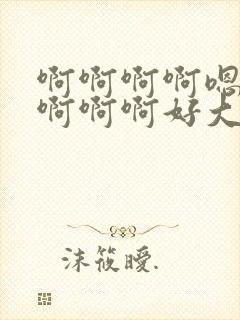 啊啊啊啊嗯
啊啊啊好大
沫筱曖.